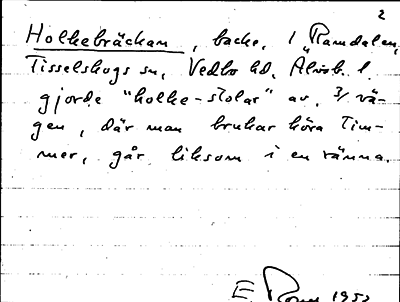 2
Holkebräckan, backe. 1 Ramdalen,
Tisselskogs sn, Vedbo hd, Älvsb. l.
gjorde "holke-stolar" av. 3/ vä-
gen, där man brukar köra tim-
mer, går liksom i en ränna.
E. 1953